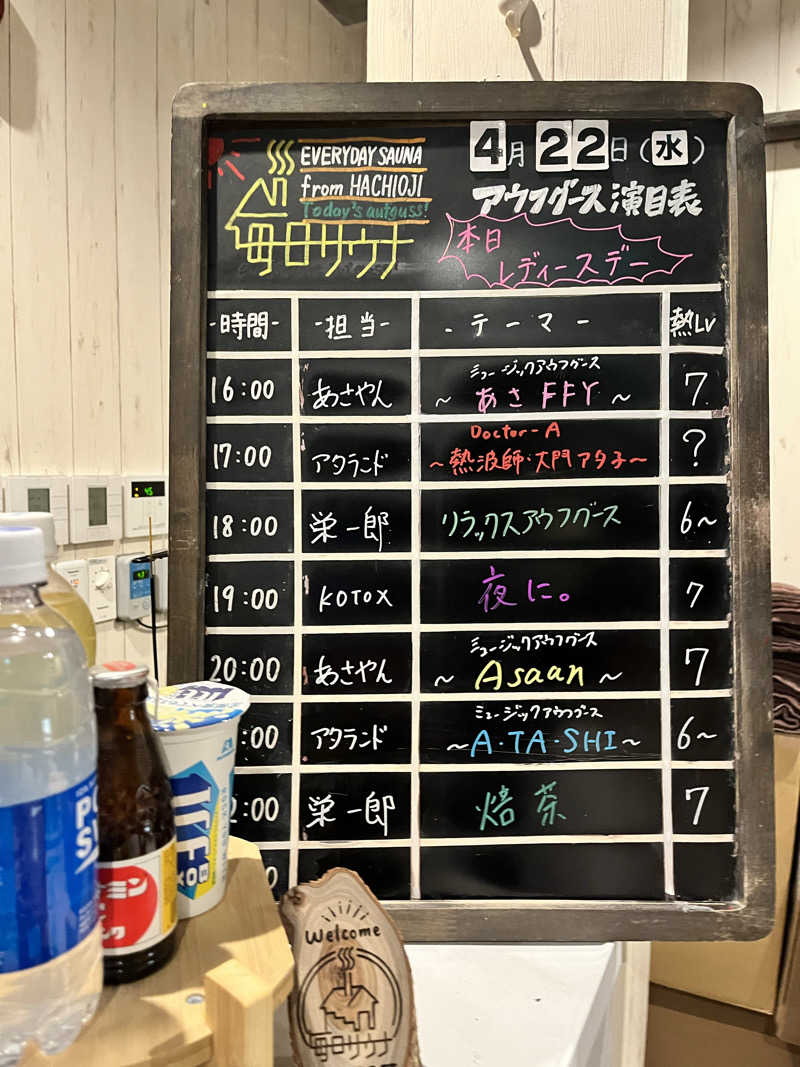 EVERYDAY SAUNA
from HACHIOJI
Today's aufguss!
毎日サウナ
4月22日(水)
アウフグース演目表
本日
レディースデー
-時間- -担当- -テーマ- 熱Lv
ミュージックアウフグース
16:00 あさやん ~あさFFY~ 7
Doctor-A
17:00 アタランド ~熱波師・大門アタ子~ ?
18:00 栄一郎 リラックスアウフグース 6~
19:00 KOTOX 夜に。 7
ミュージックアウフグース
20:00 あさやん ~Asaan~ 7
ミュージックアウフグース
:00 アタランド ~A・TA・SHI~ 6~
2:00 栄一郎 焙茶 7
Welcome
毎日サウナ